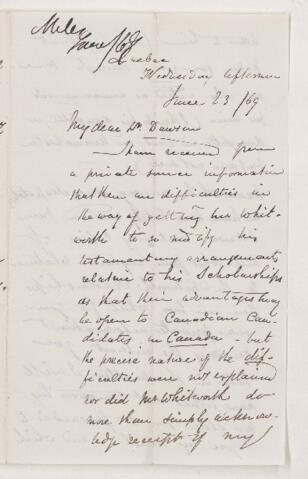 Miles
June /69
Quebec
Wednesday afternoon
June 23 /69
My dear Dr Dawson
I have received from
a private source information
that there are difficulties in
the way of getting Mr Whit-
worth to so modify his
testamentary arrangements
relative to his Scholarships
as that their advantages may
be open to Canadian Can-
didates in Canada, but
the precise nature of the dif-
ficulties were not explained
nor did Mr Whitworth do
more than simply acknow-
ledge receipt of my